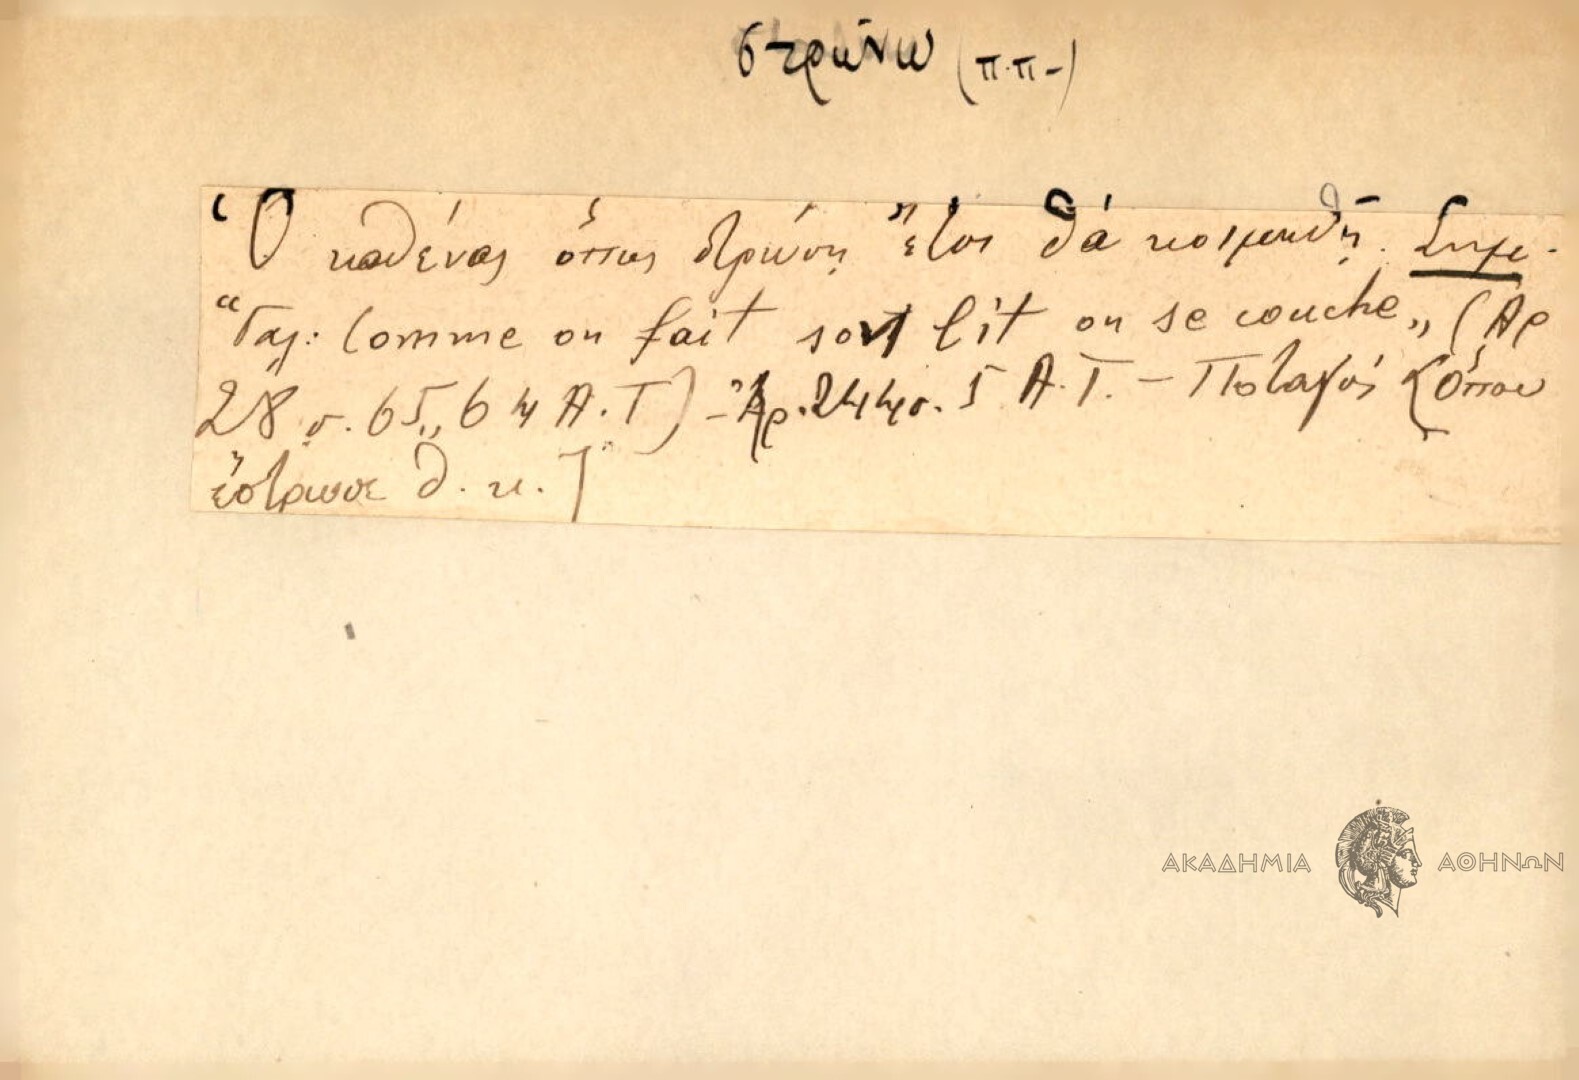 στρώνω (π.π-)
Ὁ καθένας ὅπως στρώση ἔτσι θά κοιμηθῆ. Σημ.
"Γαλ: Comme on fait son lit on se couche„ (Ἀρ
28 σ. 65„ 64 Α.Τ) - Ἀρ. 244 σ. 5 Α.Τ. - Ποταγός [Ὅπου
ἔστρωσε θ. κ.]
ΑΚΑΔΗΜΙΑ ΑΘΗΝΩΝ